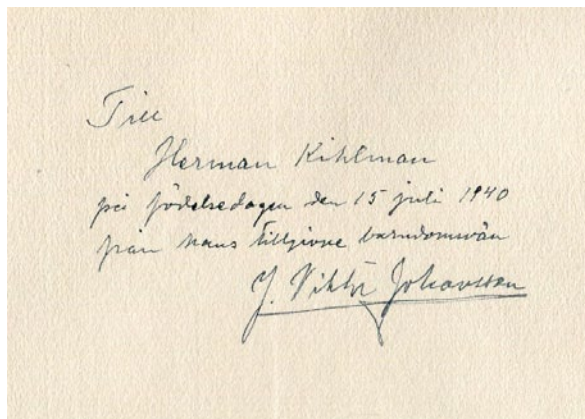 Till
Herman Kihlman
på födelsedagen den 15 juli 1940
från hans tillgivne barndomsvän
J. Viktor Johansson